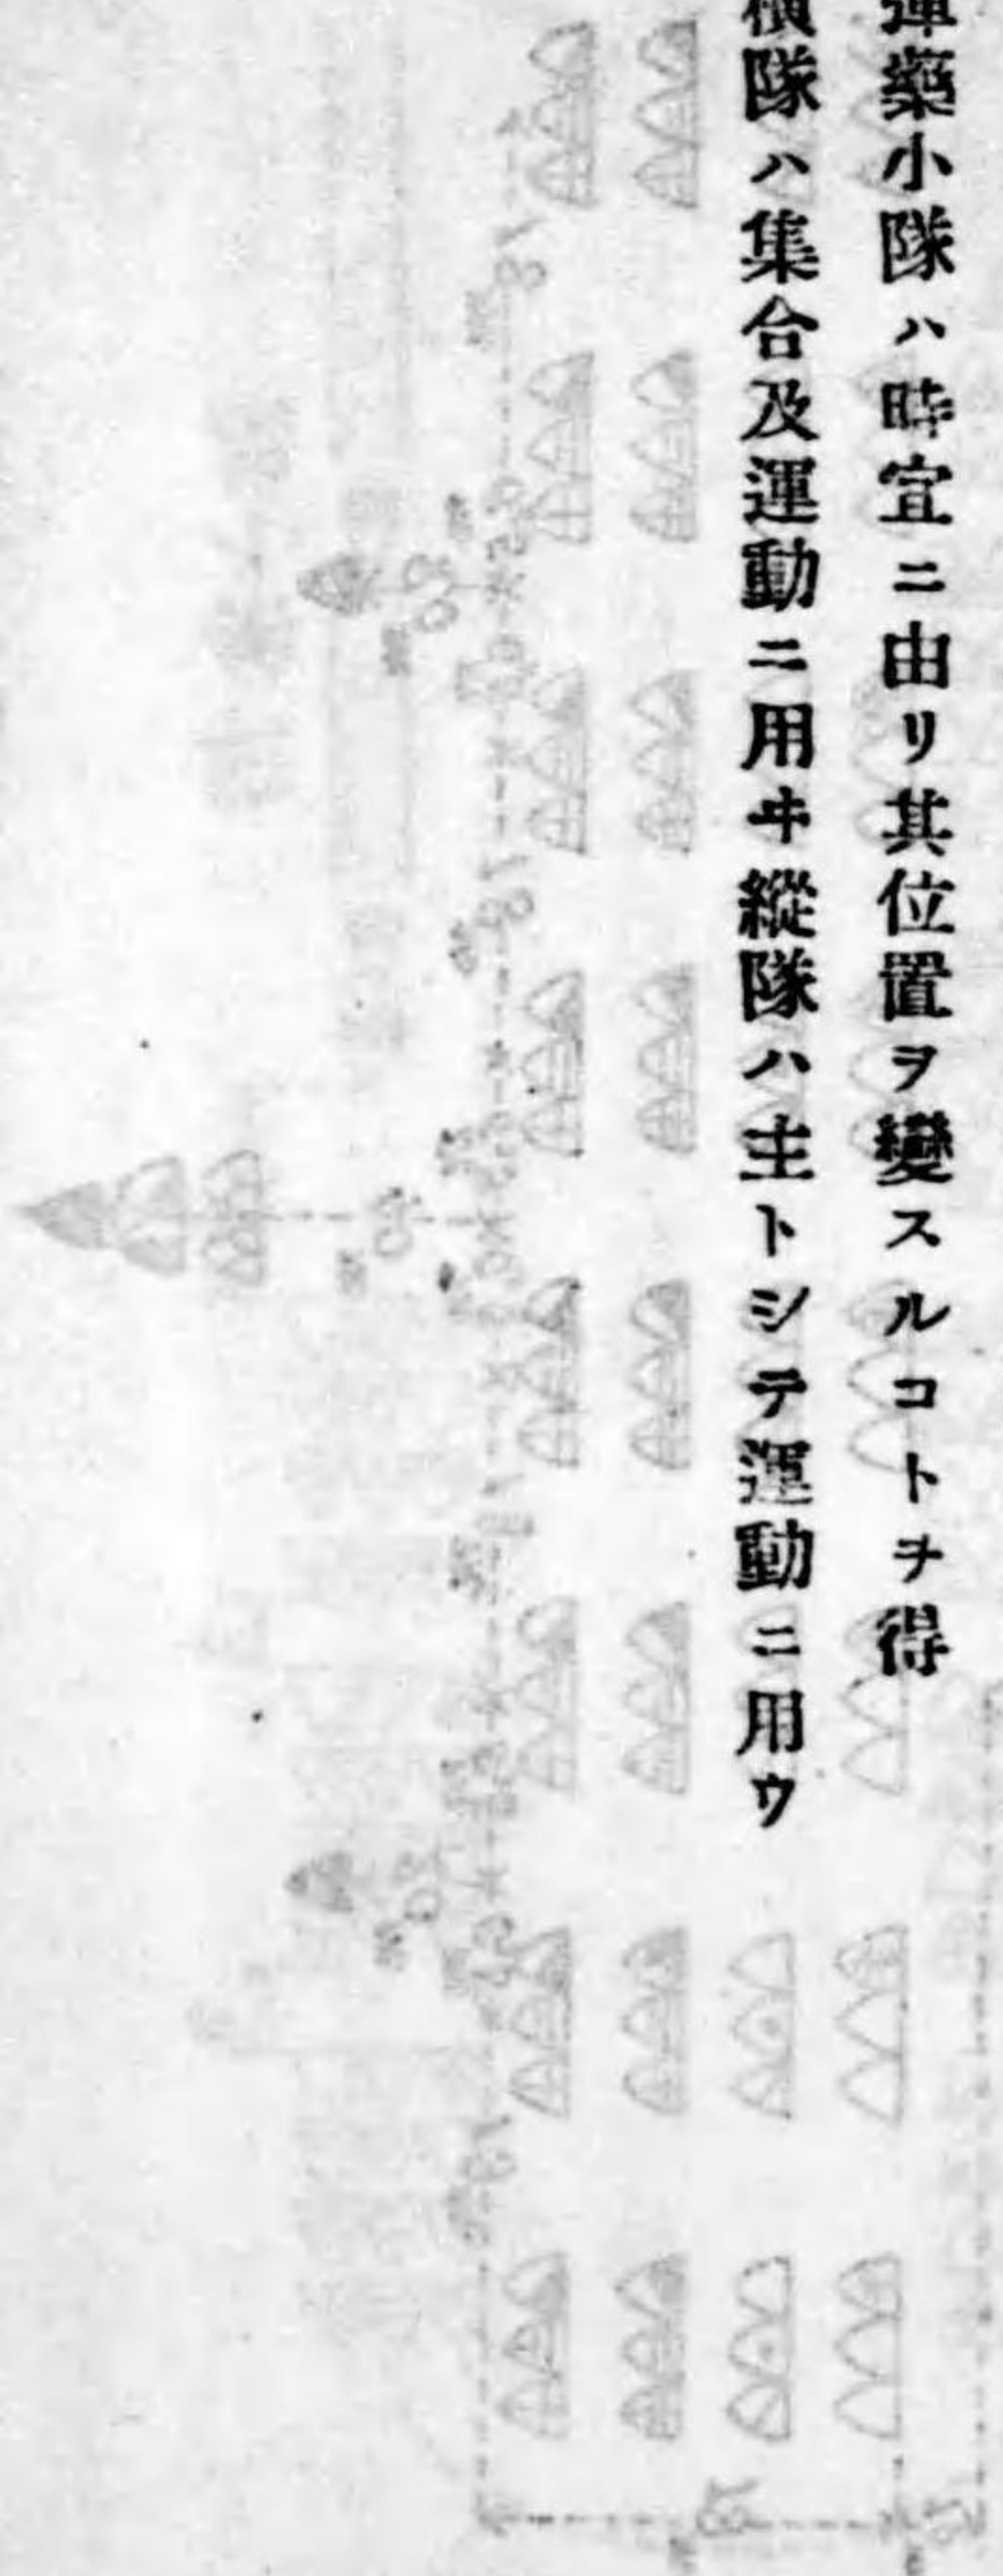 彈藥小隊ハ時宜ニ由リ其位置ヲ變スルコトヲ得
橫隊ハ集合及運動ニ用ヰ縱隊ハ主トシテ運動ニ用ウ